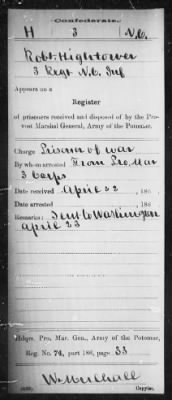 Confederate.
H 3 N.C.
Robt. Hightower
3 Regt N.C. Inf
Appears on a
Register
of prisoners received and disposed of by the Pro-
vost Marshal General, Army of the Potomac.
Charge Prisoner of war
By whom arrested From Pro. Mar
3 Corps
Date received April 22, 186
Date arrested , 186
Remarks: Sent to Washington
April 23
Hdqrs. Pro. Mar. Gen., Army of the Potomac,
Reg. No. 74, part 186, page 33
Copyist.